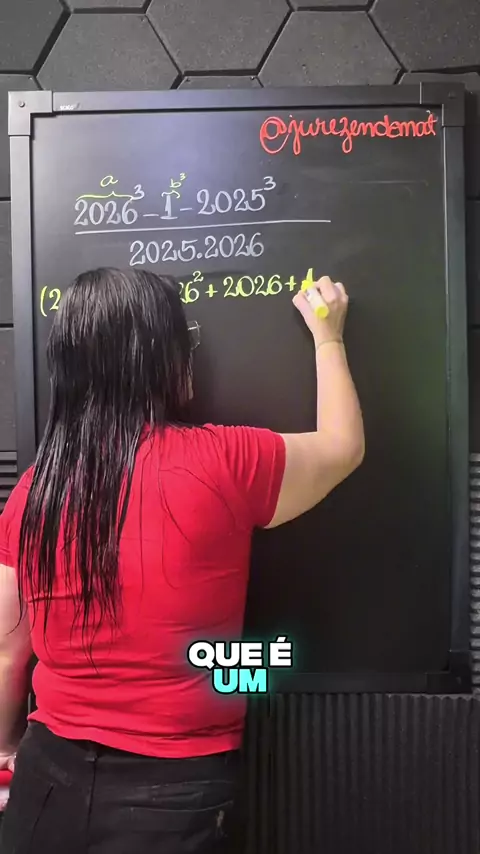 @jurezendemat
a b³
2026³ - 1 - 2025³
2025.2026
6² + 2026 +
QUE É
UM